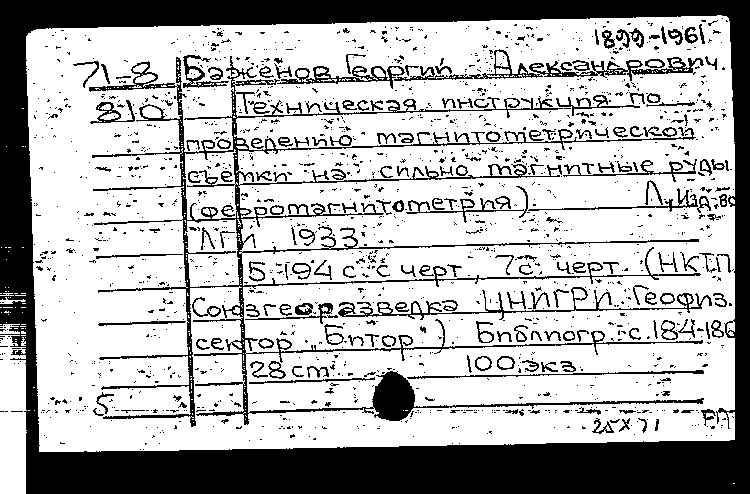 1899-1961
71-8 Баженов, Георгий Александрович.
810 Техническая инструкция по
проведению магнитометрической
съемки на сильно магнитные руды
(ферромагнитометрия). Л., Изд. во
ЛГИ, 1933.
5, 194 с. с черт., 7 с. черт. (НКТП
Союзгеоразведка ЦНИГРИ. Геофиз.
сектор „Битор"). Библиогр. с. 184-186
28 cm 100 экз.
5
25 X 71